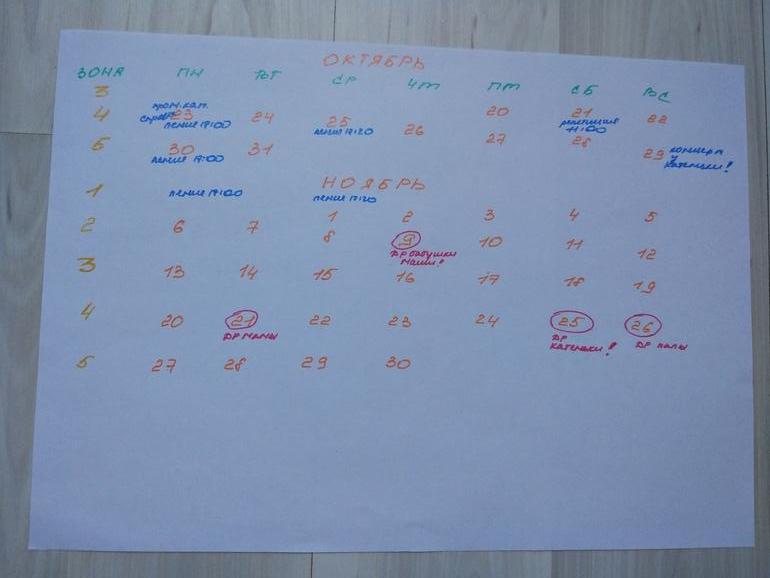 ОКТЯБРЬ
ЗОНА ПН ВТ СР ЧТ ПТ СБ ВС
3 20 21 22
репетиция
11:00
4 23 24 25 26 27 28 29
пение 19:00 пение 17:20 концерт
у
Катеньки!
5 30 31
пение 19:00
НОЯБРЬ
1 пение 17:20 1 2 3 4 5
2 6 7 8 9 10 11 12
ДР бабушки
Маши!
3 13 14 15 16 17 18 19
4 20 21 22 23 24 25 26
ДР мамы ДР ДР папы
Катеньки!
5 27 28 29 30